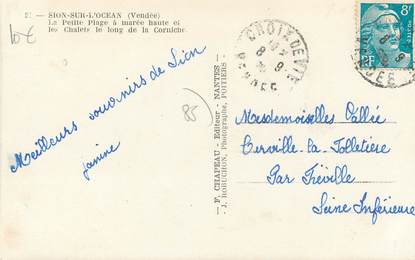 10€
2. - SION-SUR-L'OCEAN (Vendée)
La Petite Plage à marée haute et
les Chalets le long de la Corniche
CROIX DE VIE
VENDEE
8F
RF
85
F. CHAPEAU - Editeur - NANTES
J. ROBUCHON, Photographe, POITIERS
Meilleurs souvenirs de Sion
janine
Mesdemoiselles Callée
Cerville-la-Folletière
Par Fréville
Seine Inférieure